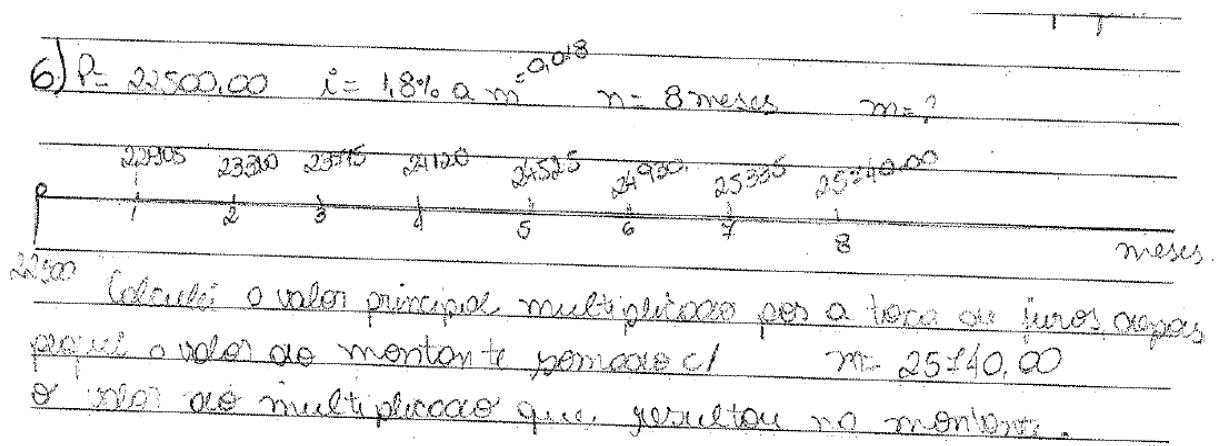 6) P= 22500,00 i= 1,8% a m =0,018 n= 8 meses m=?
22905 23310 23715 24120 24525 24930, 25335 25740,00
P 1 2 3 4 5 6 7 8 meses.
22500
Calculei o valor principal multiplicado por a taxa de juros, depois
peguei o valor do montante somado c/ m= 25740,00
o valor da multiplicacao que resultou no montante.